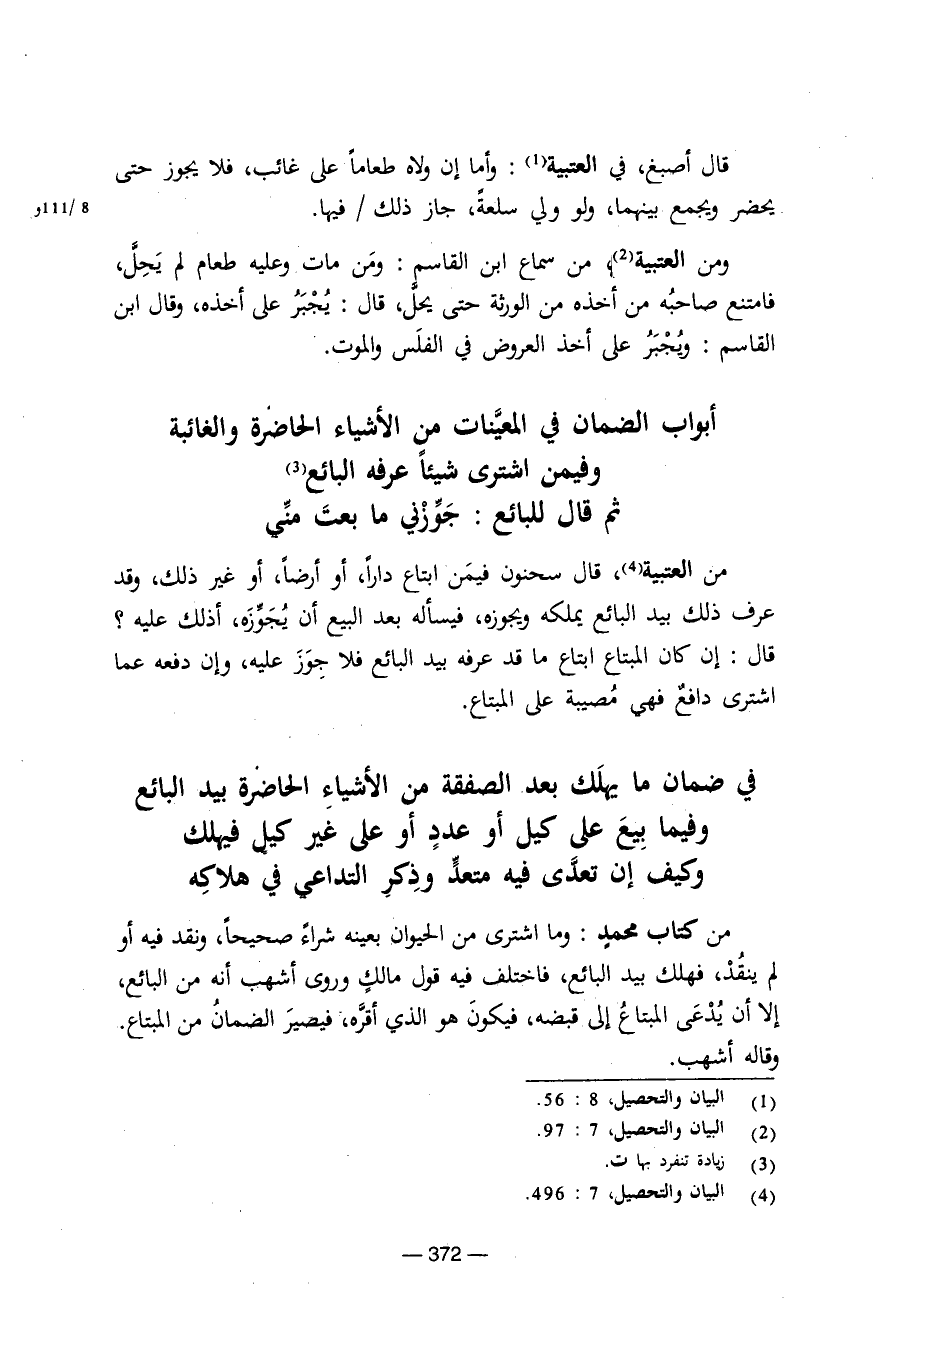 قال أصبغ، في العتبية(1) : وأما إن ولاه طعاماً على غائب، فلا يجوز حتى
يحضر ويجمع بينهما، ولو ولي سلعةً، جاز ذلك / فيها.
8 /111و
ومن العتبية(2)، من سماع ابن القاسم : ومَن مات وعليه طعام لم يَحِلَّ،
فامتنع صاحبُه من أخذه من الورثة حتى يحلَّ، قال : يُجْبَرُ على أخذه، وقال ابن
القاسم : ويُجْبَرُ على أخذ العروض في الفلَس والموت.
أبواب الضمان في المعيَّنات من الأشياء الحاضرة والغائبة
وفيمن اشترى شيئاً عرفه البائع(3)
ثم قال للبائع : جَوِّزْني ما بعتَ منِّي
من العتبية(4)، قال سحنون فيمَن ابتاع داراً، أو أرضاً، أو غير ذلك، وقد
عرف ذلك بيد البائع يملكه ويجوزه، فيسأله بعد البيع أن يُجَوِّزَه، أذلك عليه ؟
قال : إن كان المبتاع ابتاع ما قد عرفه بيد البائع فلا جِوَزَ عليه، وإن دفعه عما
اشترى دافعٌ فهي مُصيبة على المبتاع.
في ضمان ما يهلَك بعد الصفقة من الأشياءِ الحاضرة بيد البائع
وفيما بِيعَ على كيل أو عددٍ أو على غير كيلٍ فيهلك
وكيف إن تعدَّى فيه متعدٍّ وذِكرِ التداعي في هلاكِه
من كتاب محمدٍ : وما اشترى من الحيوان بعينه شراءً صحيحاً، ونقد فيه أو
لم ينقُدْ، فهلك بيد البائع، فاختلف فيه قول مالكٍ وروى أشهب أنه من البائع،
إلا أن يُدْعَى المبتاعُ إلى قبضه، فيكونَ هو الذي أقرَّه، فيصيرَ الضمانُ من المبتاع.
وقاله أشهب.
(1) البيان والتحصيل، 8 : 56.
(2) البيان والتحصيل، 7 : 97.
(3) زيادة تنفرد بها ت.
(4) البيان والتحصيل، 7 : 496.
— 372 —